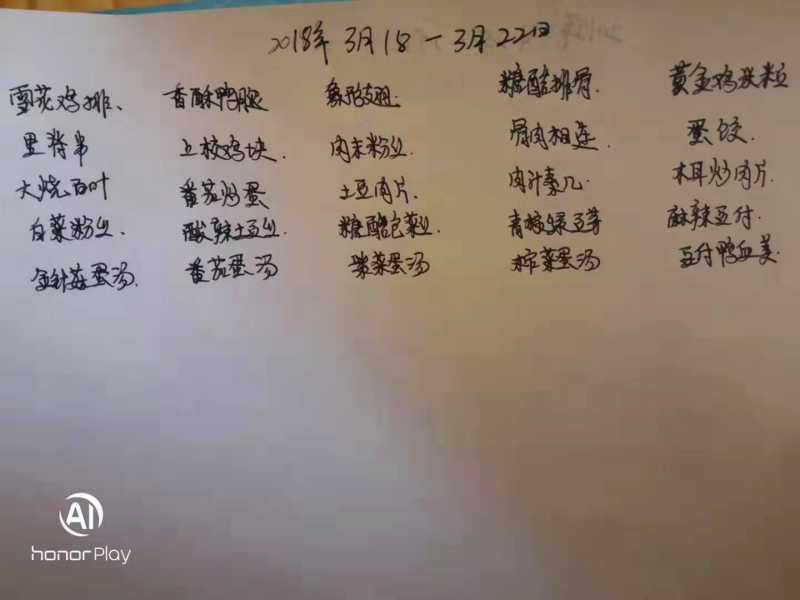 2018年 3月18-3月22日
雪花鸡排、 香酥鸭腿 糖醋排骨. 黄金鸡米粒
里脊串 上校鸡块. 肉末粉丝. 骨肉相连. 蛋饺.
大烧百叶 番茄炒蛋 土豆肉片. 肉汁素几. 木耳炒肉片.
白菜粉丝. 酸辣土豆丝 糖醋包菜丝 青椒绿豆芽 麻辣豆付.
金针菇蛋汤. 番茄蛋汤 紫菜蛋汤 榨菜蛋汤 豆付鸭血羹.
AI
honor Play